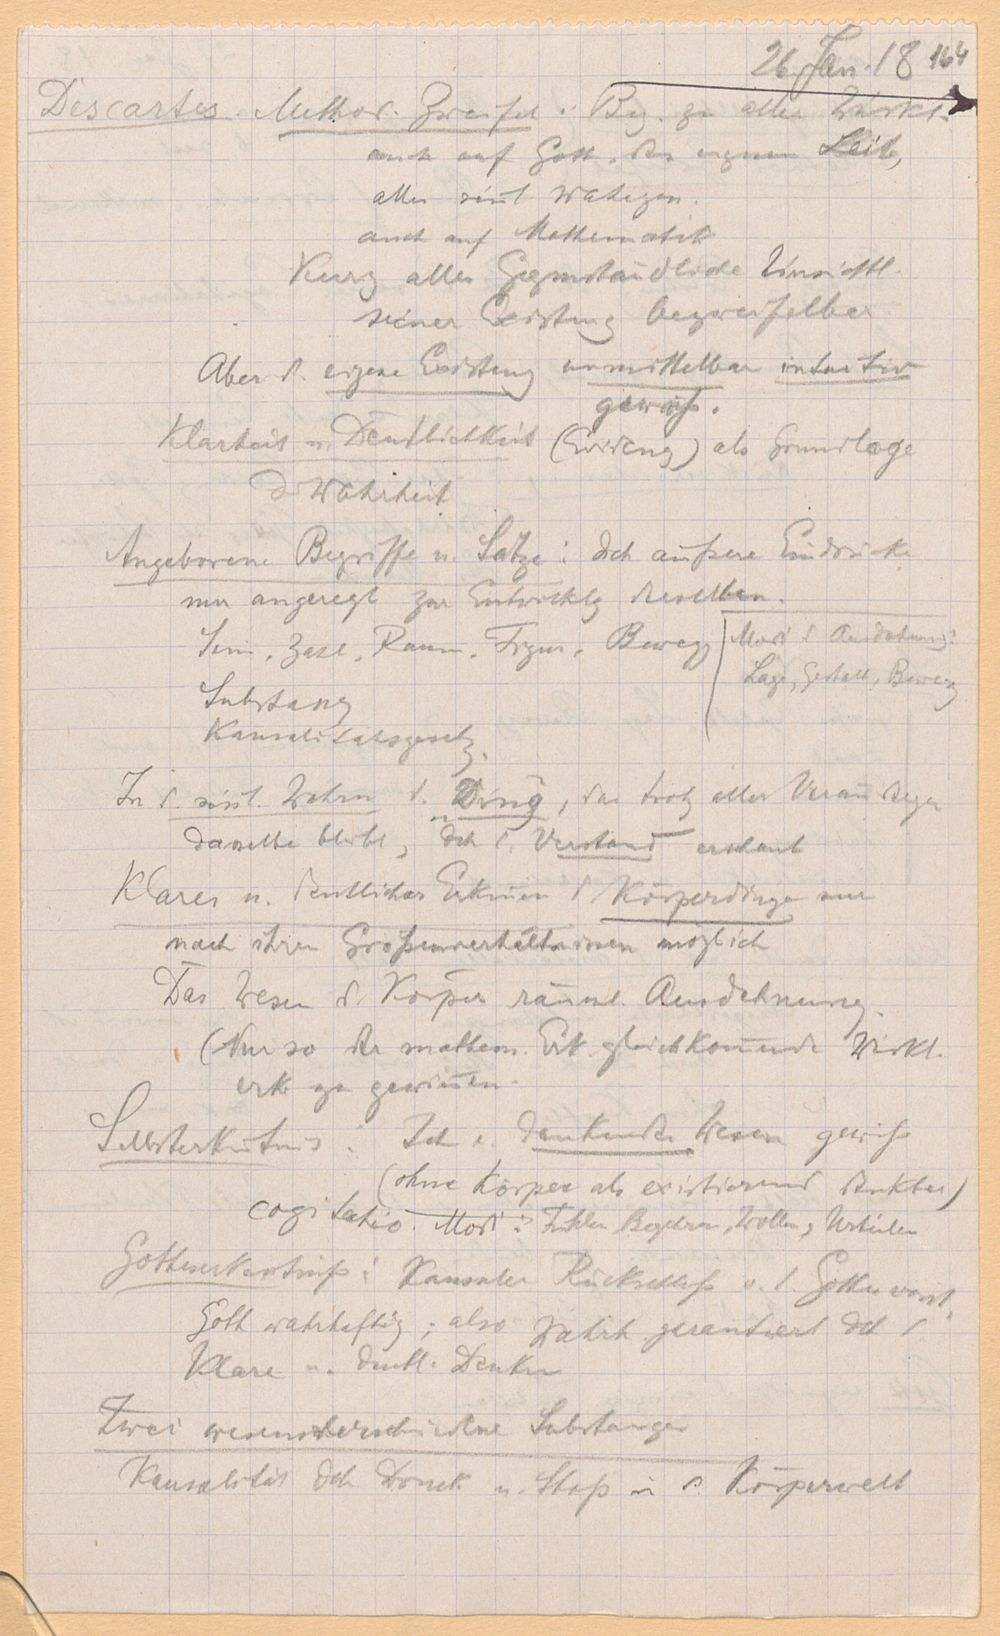 26. Jan. 18 164
Descartes. Method. Zweifel: Bez. zu aller Wirkl.
auch auf Gott, den eigenen Leib,
alles sinnl
auch auf Mathematik
Kurz alles Gegenständliche hinsichtl.
seiner Existenz bezweifelbar
Aber d. eigene Existenz unmittelbar intuitiv
gewiß.
Klarheit u. Deutlichkeit (Evidenz) als Grundlage
d Wahrheit
Angeborene Begriffe u. Sätze: dch äußere Eindrücke
nur angeregt zur Entwicklg derselben.
Sein, Zahl, Raum, Figur, Bewegg
Modi d Ausdehnung:
Lage, Gestalt, Bewegg
Substanz
Kausalitätsgesetz.
In d. sinnl. Wahrn d. "Ding", das trotz aller Verändrgen
dasselbe bleibt, dch d. Verstand erschaut
Klares u. deutliches Erkennen d Körperdinge nur
nach ihren Größenverhältnissen möglich
Das Wesen d. Körper räuml. Ausdehnung.
(Nur so der mathem. Erk. gleichkommende Wirkl.
erk zu gewinnen.
Selbsterkntnis: Ich e. denkendes Wesen gewiß
(ohne Körper als existierend denkbar)
cogitatio. Modi: Fühlen Begehren, Wollen, Urteilen
Gotteserkentniß: Kausaler Rückschluß v. d. Gottesvorst.
Gott wahrhaftig; also Wahrh garantiert dch d
klare u. deutl. Denken
Zwei wesensverschiedene Substanzen
Kausalität dch Druck u. Stoß in d. Körperwelt